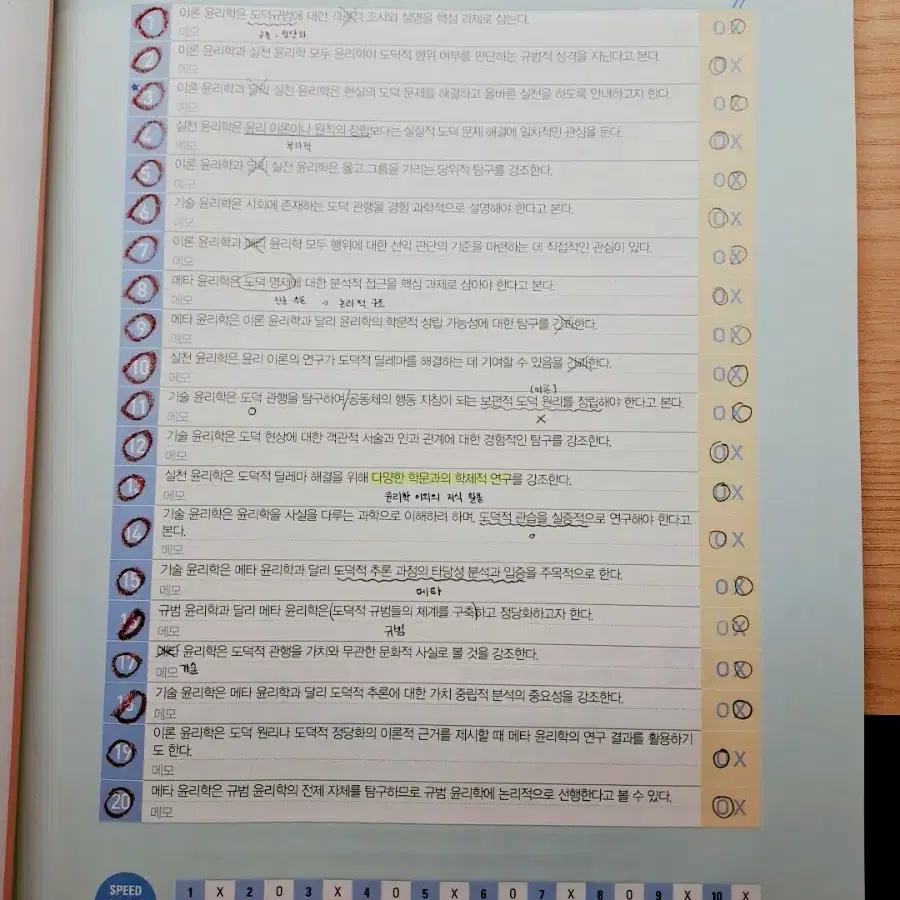 1 이론 윤리학은 도덕규범에 대한 객관적 조사와 설명을 핵심 과제로 삼는다. O X
메모
2 이론 윤리학과 실천 윤리학 모두 윤리학이 도덕적 행위 여부를 판단하는 규범적 성격을 지닌다고 본다. O X
메모
3 이론 윤리학과 달리 실천 윤리학은 현실의 도덕 문제를 해결하고 올바른 실천을 하도록 안내하고자 한다. O X
메모
4 실천 윤리학은 윤리 이론이나 원칙의 정립보다는 실질적 도덕 문제 해결에 일차적인 관심을 둔다. O X
메모 부차적
5 이론 윤리학과 달리 실천 윤리학은 옳고 그름을 가리는 당위적 탐구를 강조한다. O X
메모
6 기술 윤리학은 사회에 존재하는 도덕 관행을 경험 과학적으로 설명해야 한다고 본다. O X
메모
7 이론 윤리학과 메타 윤리학 모두 행위에 대한 선악 판단의 기준을 마련하는 데 직접적인 관심이 있다. O X
메모
8 메타 윤리학은 도덕 명제에 대한 분석적 접근을 핵심 과제로 삼아야 한다고 본다. O X
메모 진술·추론 → 논리적 구조
9 메타 윤리학은 이론 윤리학과 달리 윤리학의 학문적 성립 가능성에 대한 탐구를 간과한다. O X
메모
10 실천 윤리학은 윤리 이론의 연구가 도덕적 딜레마를 해결하는 데 기여할 수 있음을 간과한다. O X
메모
(이론)
11 기술 윤리학은 도덕 관행을 탐구하여/공동체의 행동 지침이 되는 보편적 도덕 원리를 정립해야 한다고 본다. O X
메모 O X
12 기술 윤리학은 도덕 현상에 대한 객관적 서술과 인과 관계에 대한 경험적인 탐구를 강조한다. O X
메모
13 실천 윤리학은 도덕적 딜레마 해결을 위해 다양한 학문과의 학제적 연구를 강조한다. O X
메모 윤리학 이외의 지식 활용
14 기술 윤리학은 윤리학을 사실을 다루는 과학으로 이해하려 하며, 도덕적 관습을 실증적으로 연구해야 한다고
본다. O X
메모
15 기술 윤리학은 메타 윤리학과 달리 도덕적 추론 과정의 타당성 분석과 입증을 주목적으로 한다. O X
메모 메타
16 규범 윤리학과 달리 메타 윤리학은(도덕적 규범들의 체계를 구축)하고 정당화하고자 한다. O X
메모 규범
17 메타 윤리학은 도덕적 관행을 가치와 무관한 문화적 사실로 볼 것을 강조한다. O X
메모 기술
18 기술 윤리학은 메타 윤리학과 달리 도덕적 추론에 대한 가치 중립적 분석의 중요성을 강조한다. O X
메모
19 이론 윤리학은 도덕 원리나 도덕적 정당화의 이론적 근거를 제시할 때 메타 윤리학의 연구 결과를 활용하기
도 한다. O X
메모
20 메타 윤리학은 규범 윤리학의 전제 자체를 탐구하므로 규범 윤리학에 논리적으로 선행한다고 볼 수 있다. O X
메모
SPEED 1 X 2 O 3 X 4 O 5 X 6 O 7 X 8 O 9 X 10 X